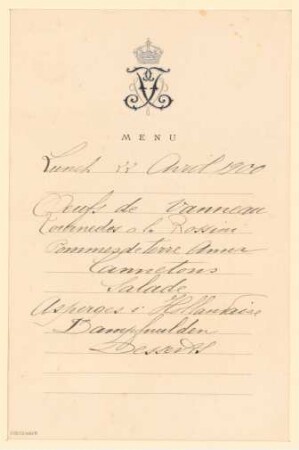 MENU
Lunch 22 Avril 1900
Oeufs de Vanneau
Tournedos à la Rossini
Pommes de terre Anna
Cannetons
Salade
Asperges : Hollandaise
Dampfnulden
Desserts